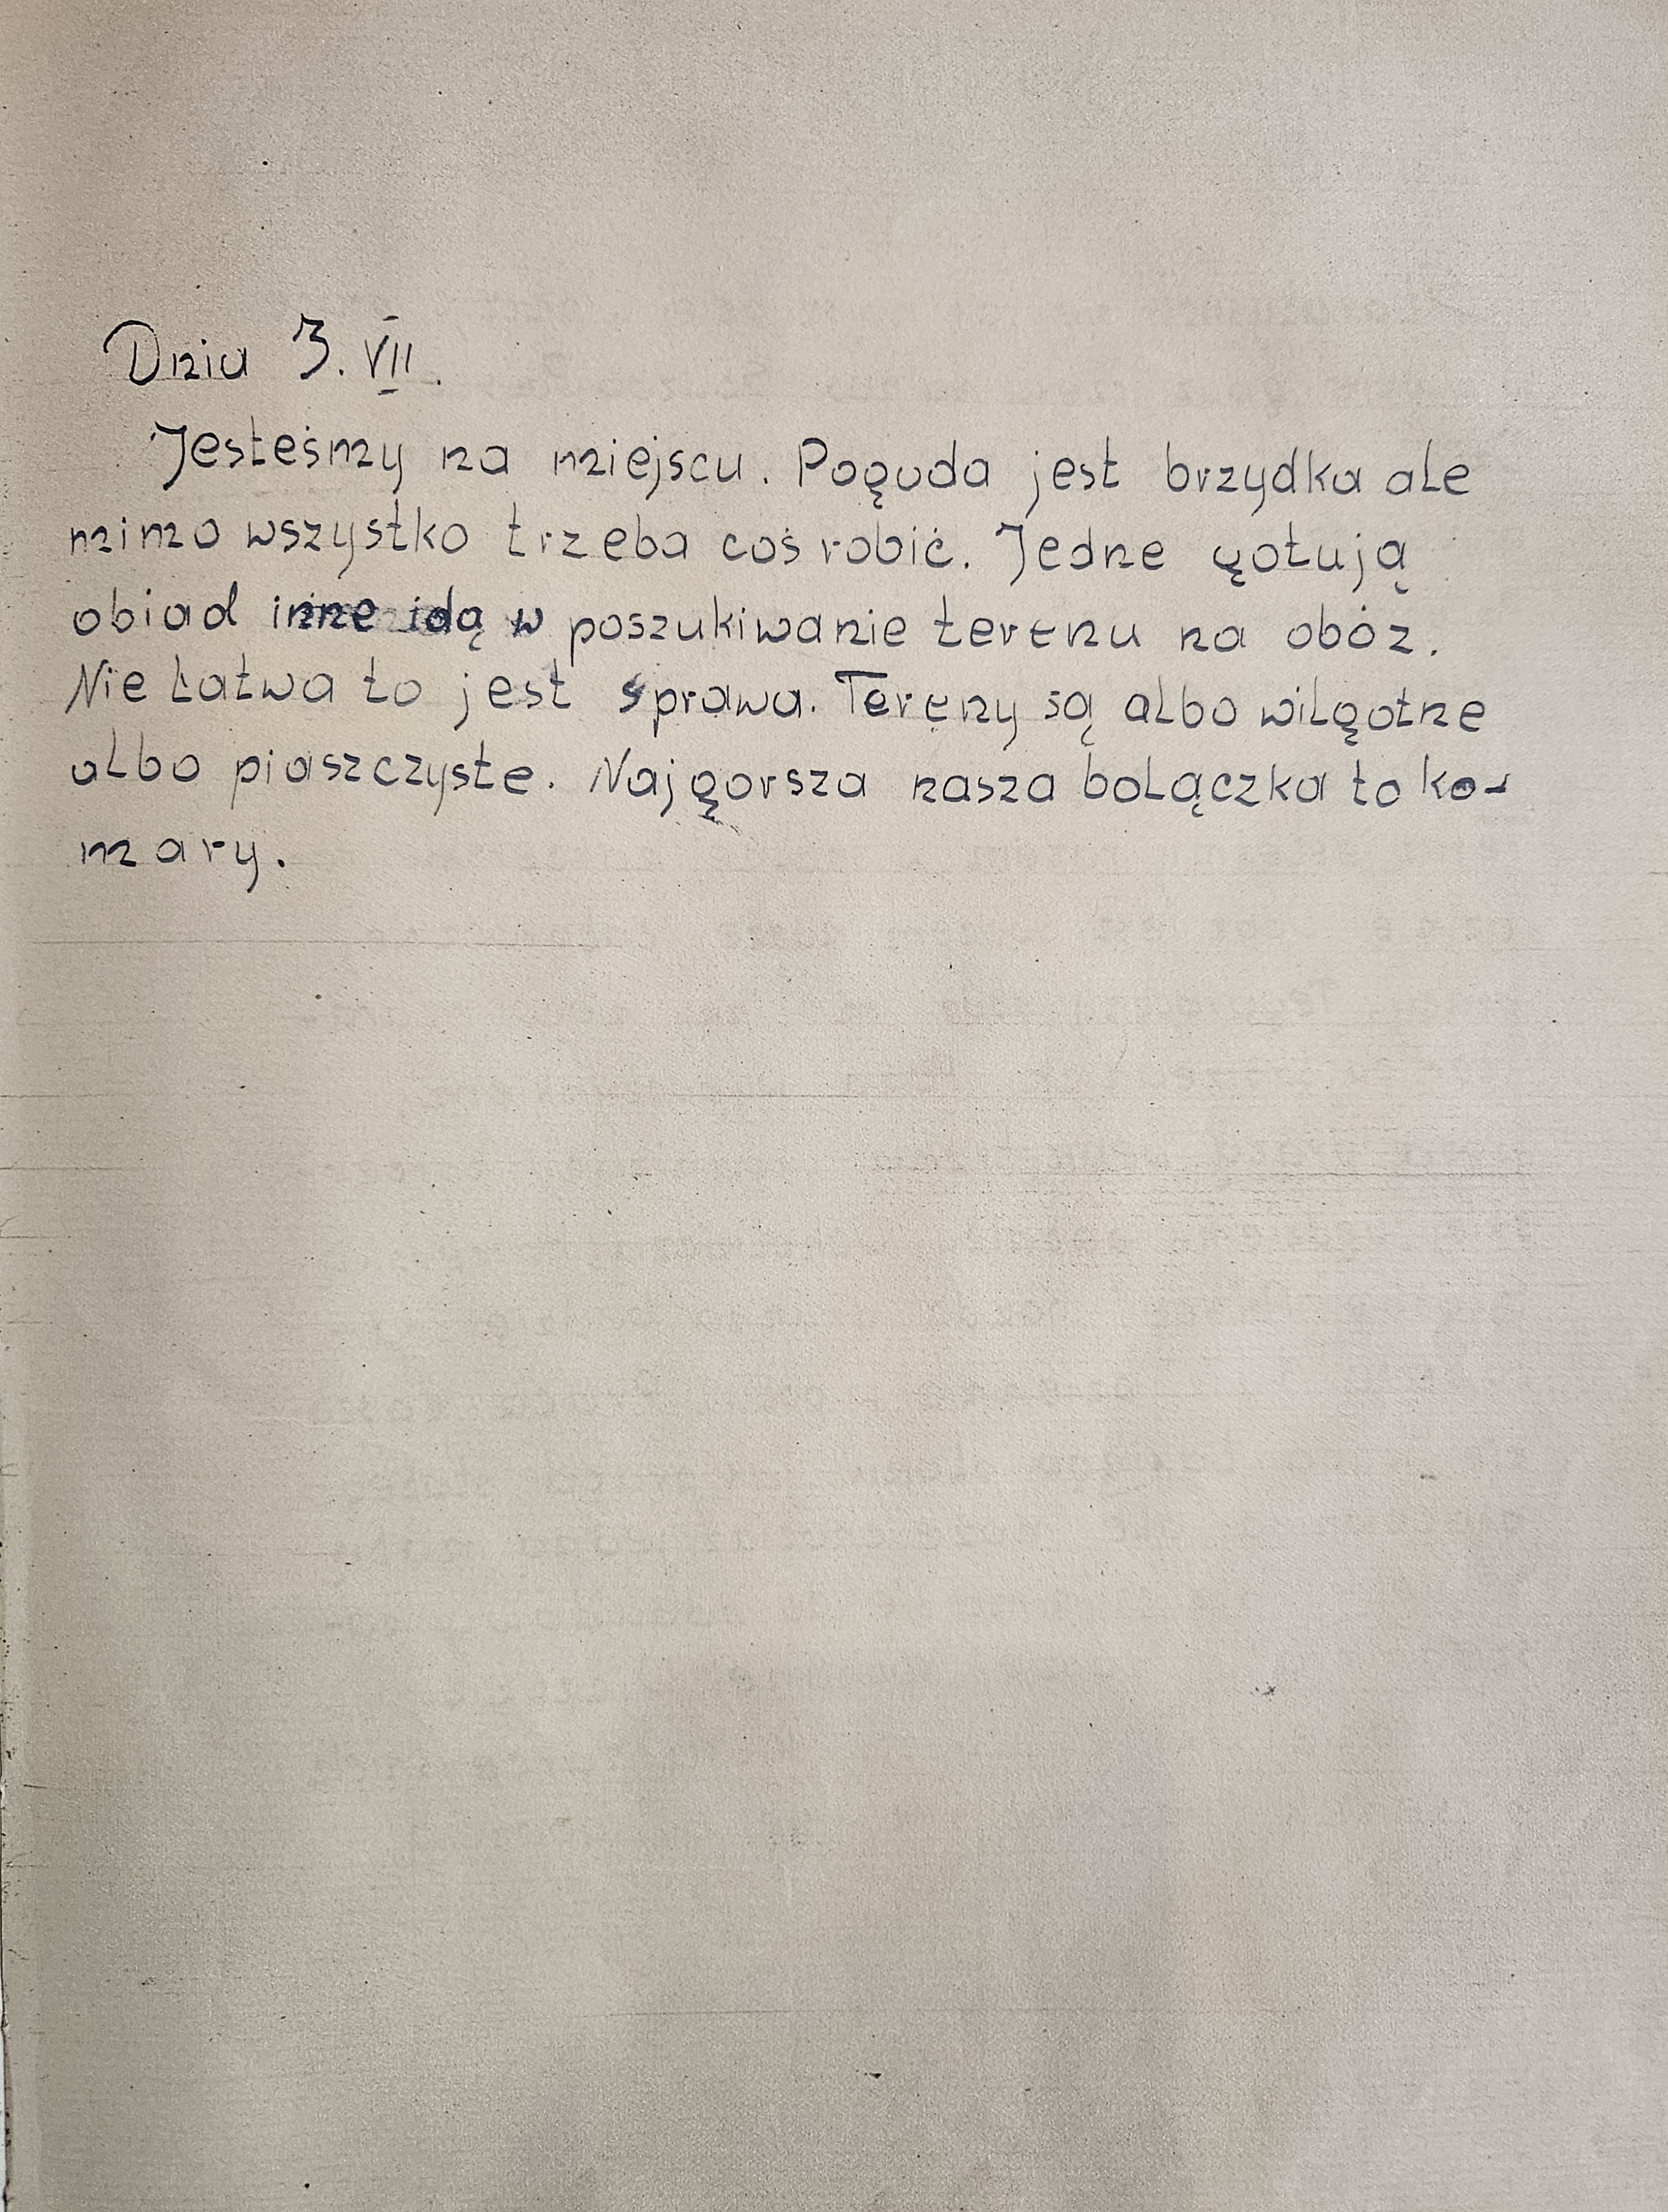 Dnia 3. VII.
Jesteśmy na miejscu. Pogoda jest brzydka ale
mimo wszystko trzeba coś robić. Jedne gotują
obiad inne idą w poszukiwanie terenu na obóz.
Nie łatwa to jest sprawa. Tereny są albo wilgotne
albo piaszczyste. Najgorsza nasza bolączka to ko-
mary.